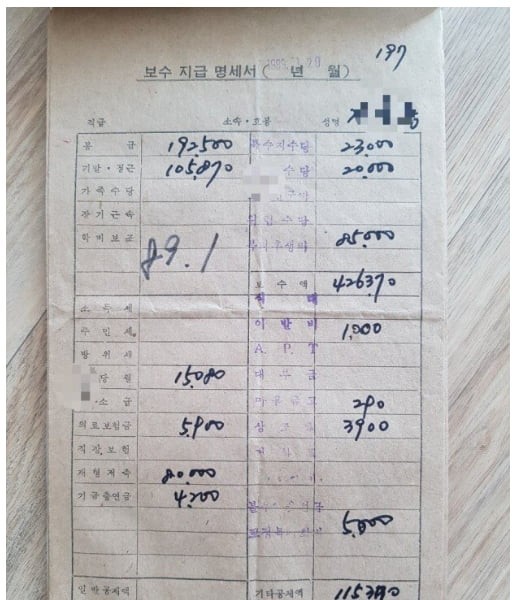 197
보수 지급 명세서 (1989. 1. 20 년 월)
직급 소속·호봉 성명
봉급 192500 특수지수당 23,000
기말·정근 105,870 수당 20,000
가족수당
장기근속
학비보조 85,000
89.1
보수액 426370
소득세
주민세 이발비 1,000
방위세 A.P.T
당월 15,080 대부금
소급 마을금고 290
의료보험금 5,900 상조회 3900
직장보험
재형저축 80,000
기금출연금 4,200
5,000
일반공제액 기타공제액 115370